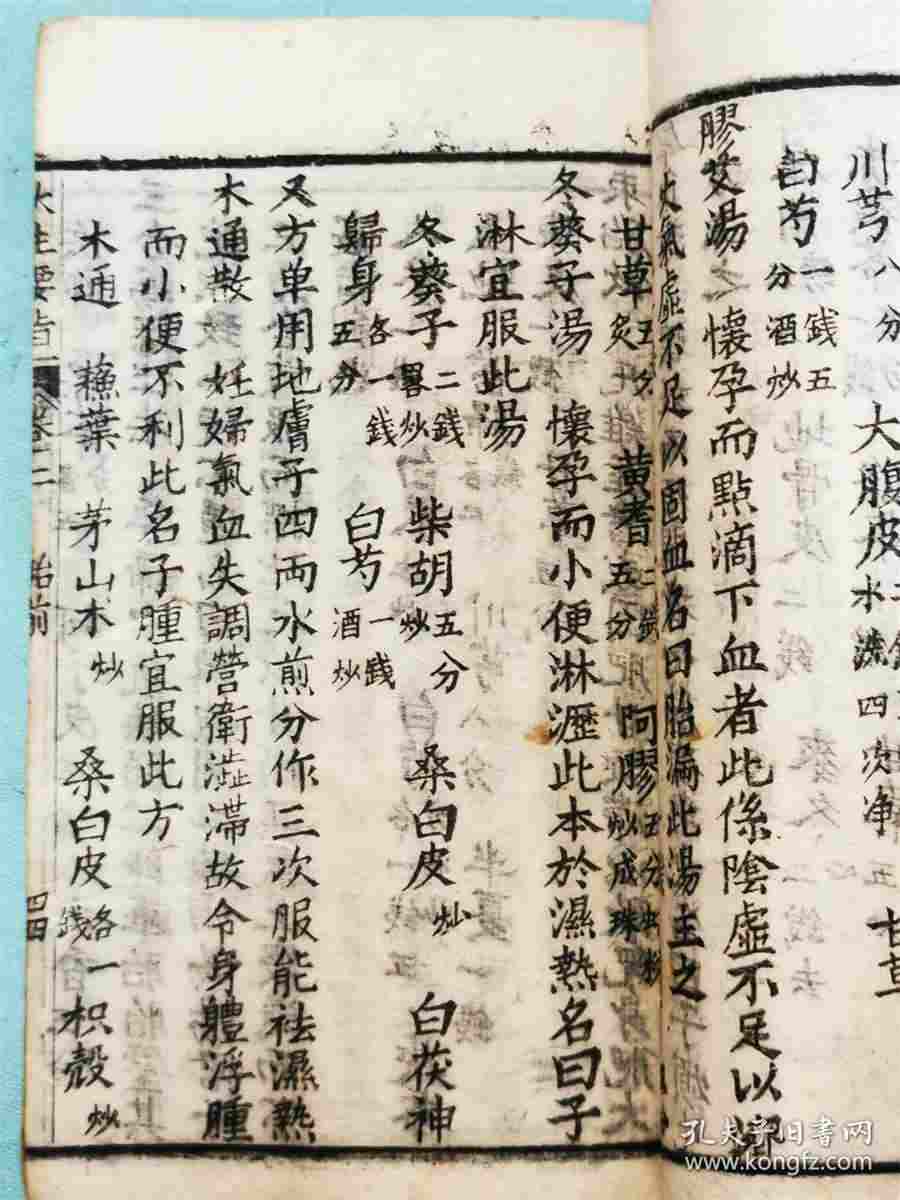 川芎八分 大腹皮 水洗四次净 甘草
白芍一銭五分酒炒
膠艾湯 懷孕而點滴下血者此係陰虛不足以
氣虛不足以固血名曰胎漏此湯主之
甘草炙 黄耆五分 阿膠炒成珠
冬葵子湯 懷孕而小便淋瀝此本於濕熱名曰子
淋宜服此湯
冬葵子二銭畧炒 柴胡五分炒 桑白皮炒 白茯神
歸身五分各一銭 白芍一銭酒炒
又方单用地膚子四両水煎分作三次服能祛濕熱
木通散 妊婦氣血失調營衛澁滯故令身體浮腫
而小便不利此名子腫宜服此方
木通 蘓葉 茅山术炒 桑白皮各一銭 枳殼炒
生要旨 卷二 胎前 四四
孔夫子旧书网
www.kongfz.com